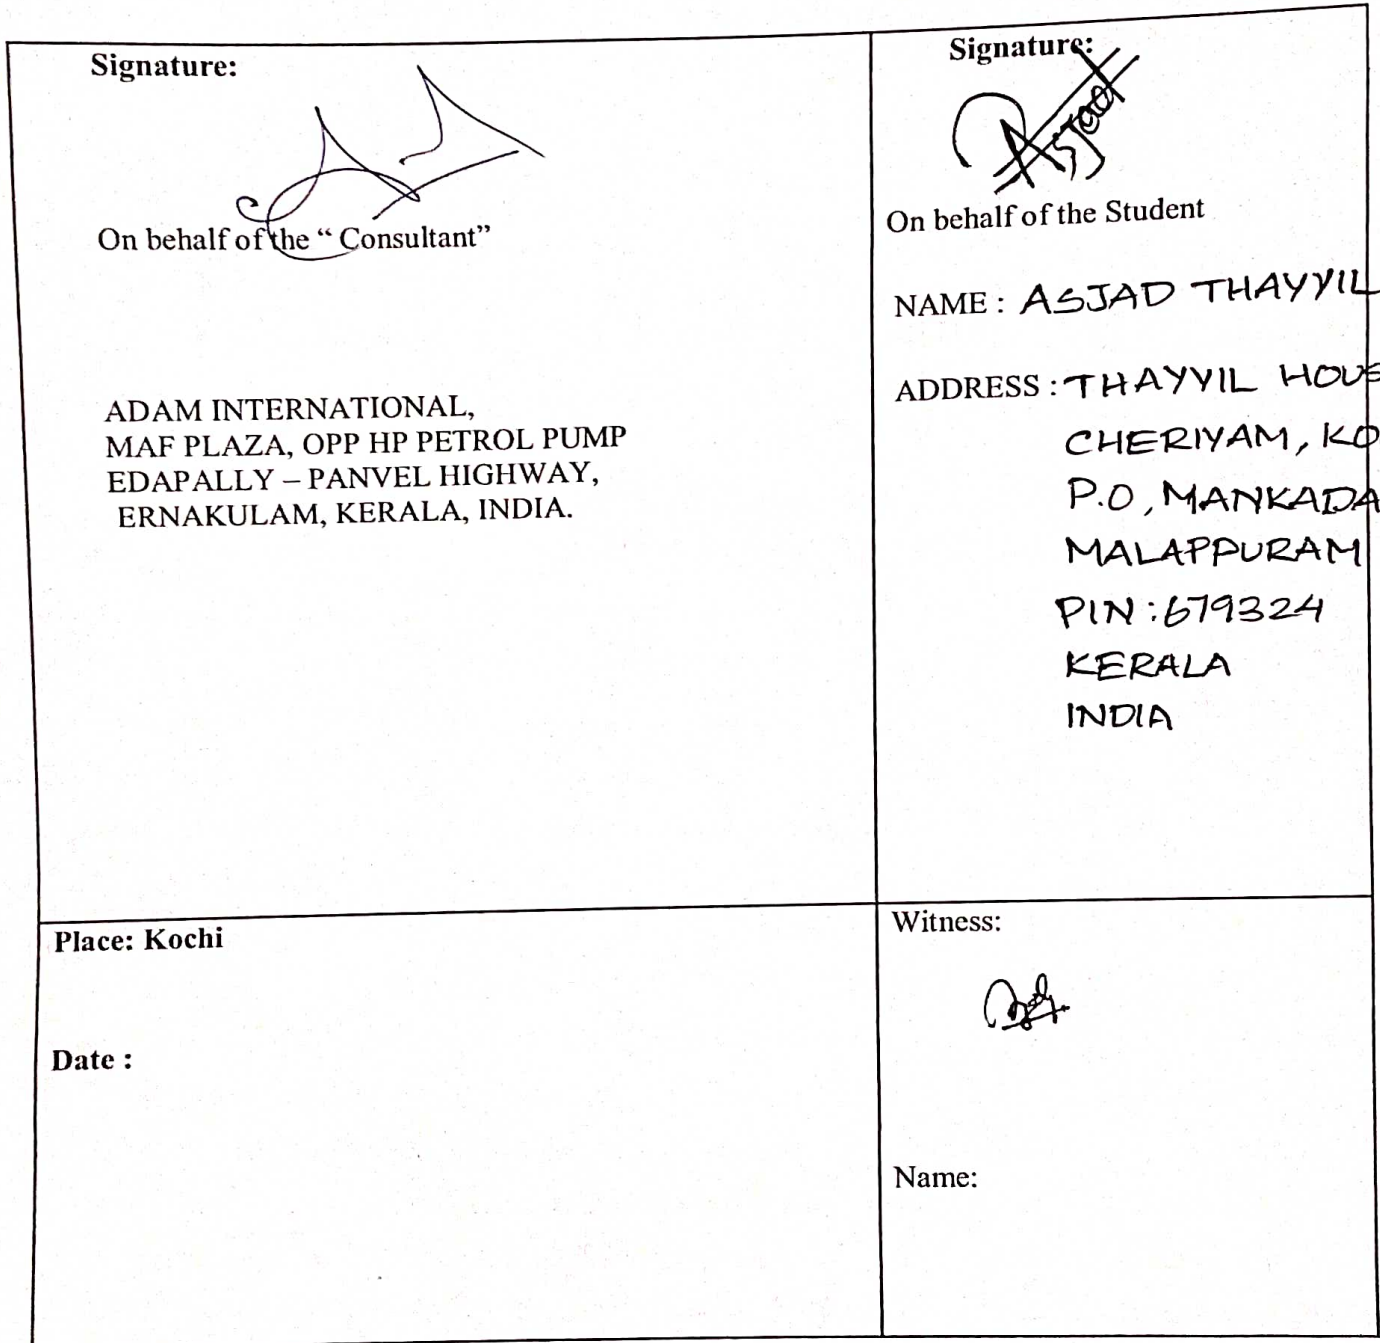 Signature:
On behalf of the “ Consultant”
ADAM INTERNATIONAL,
MAF PLAZA, OPP HP PETROL PUMP
EDAPALLY – PANVEL HIGHWAY,
ERNAKULAM, KERALA, INDIA.
Signature:
Asjad
On behalf of the Student
NAME : ASJAD THAYYIL
ADDRESS : THAYYIL HOUS
CHERIYAM, KO
P.O, MANKADA
MALAPPURAM
PIN : 679324
KERALA
INDIA
Place: Kochi
Date :
Witness:
Name: